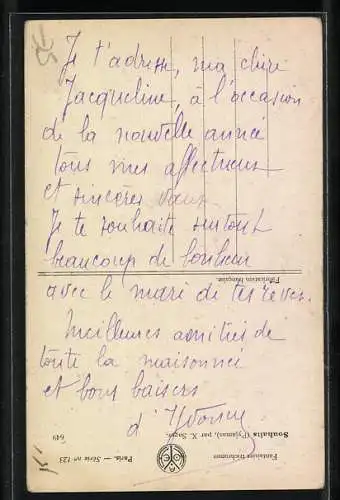 Je t'adresse, ma chère
Jacqueline, à l'occasion
de la nouvelle année
tous mes affectueux
et sincères vœux
Je te souhaite surtout
beaucoup de bonheur
Fabrication française.
avec le mari de tes rêves.
Meilleures amitiés de
toute la maisonnée
et bons baisers
d'
Fantaisies trichromes
Souhaits (Pyjamas), par X. Sager.
Paris. — Série nº 123
649